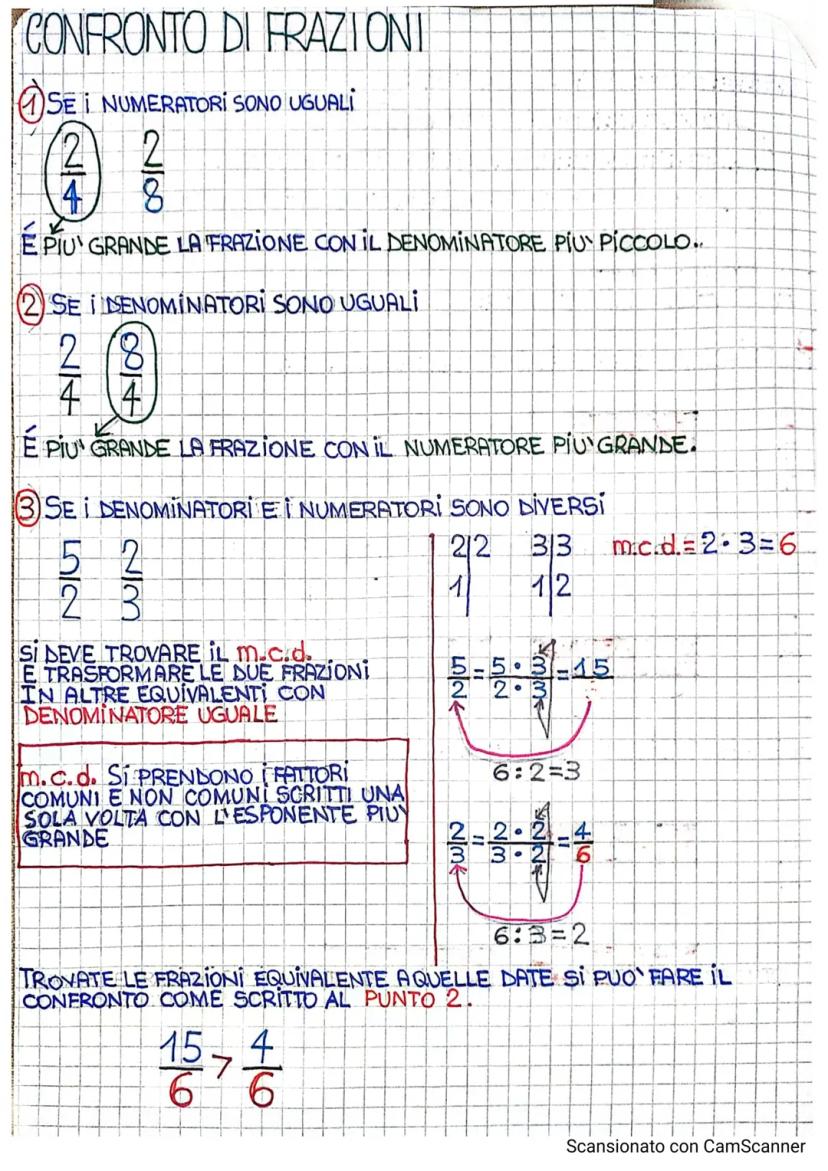 CONFRONTO DI FRAZIONI
1 SE i NUMERATORI SONO UGUALI
2/4 2/8
É PIU' GRANDE LA FRAZIONE CON IL DENOMINATORE PIU' PICCOLO..
2 SE I DENOMINATORI SONO UGUALI
2/4 8/4
É PIU' GRANDE LA FRAZIONE CON IL NUMERATORE PIU' GRANDE.
3 SE I DENOMINATORI E I NUMERATORI SONO DIVERSI
5/2 2/3
SI DEVE TROVARE IL m.c.d.
E TRASFORMARE LE DUE FRAZIONI
IN ALTRE EQUIVALENTI CON
DENOMINATORE UGUALE
m.c.d. SI PRENDONO I FATTORI
COMUNI E NON COMUNI SCRITTI UNA
SOLA VOLTA CON L'ESPONENTE PIU'
GRANDE
2|2 3|3 m.c.d.=2·3=6
1| 1|2
5/2 = 5·3/2·3 = 15
6:2=3
2/3 = 2·2/3·2 = 4/6
6:3=2
TROVATE LE FRAZIONI EQUIVALENTE A QUELLE DATE SI PUO' FARE IL
CONFRONTO COME SCRITTO AL PUNTO 2.
15/6 > 4/6
Scansionato con CamScanner